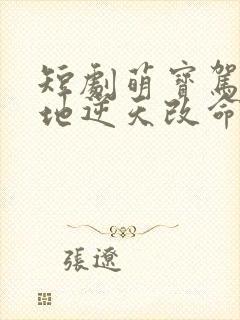 短劇萌寶駕
地逆天改命
張遼